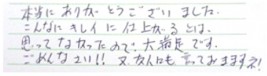 本当にありがとうございました。
こんなにキレイに仕上がるとは、
思ってなかったので、大満足です。
ごめんなさい!! 又 友人にも 言ってみますネ!